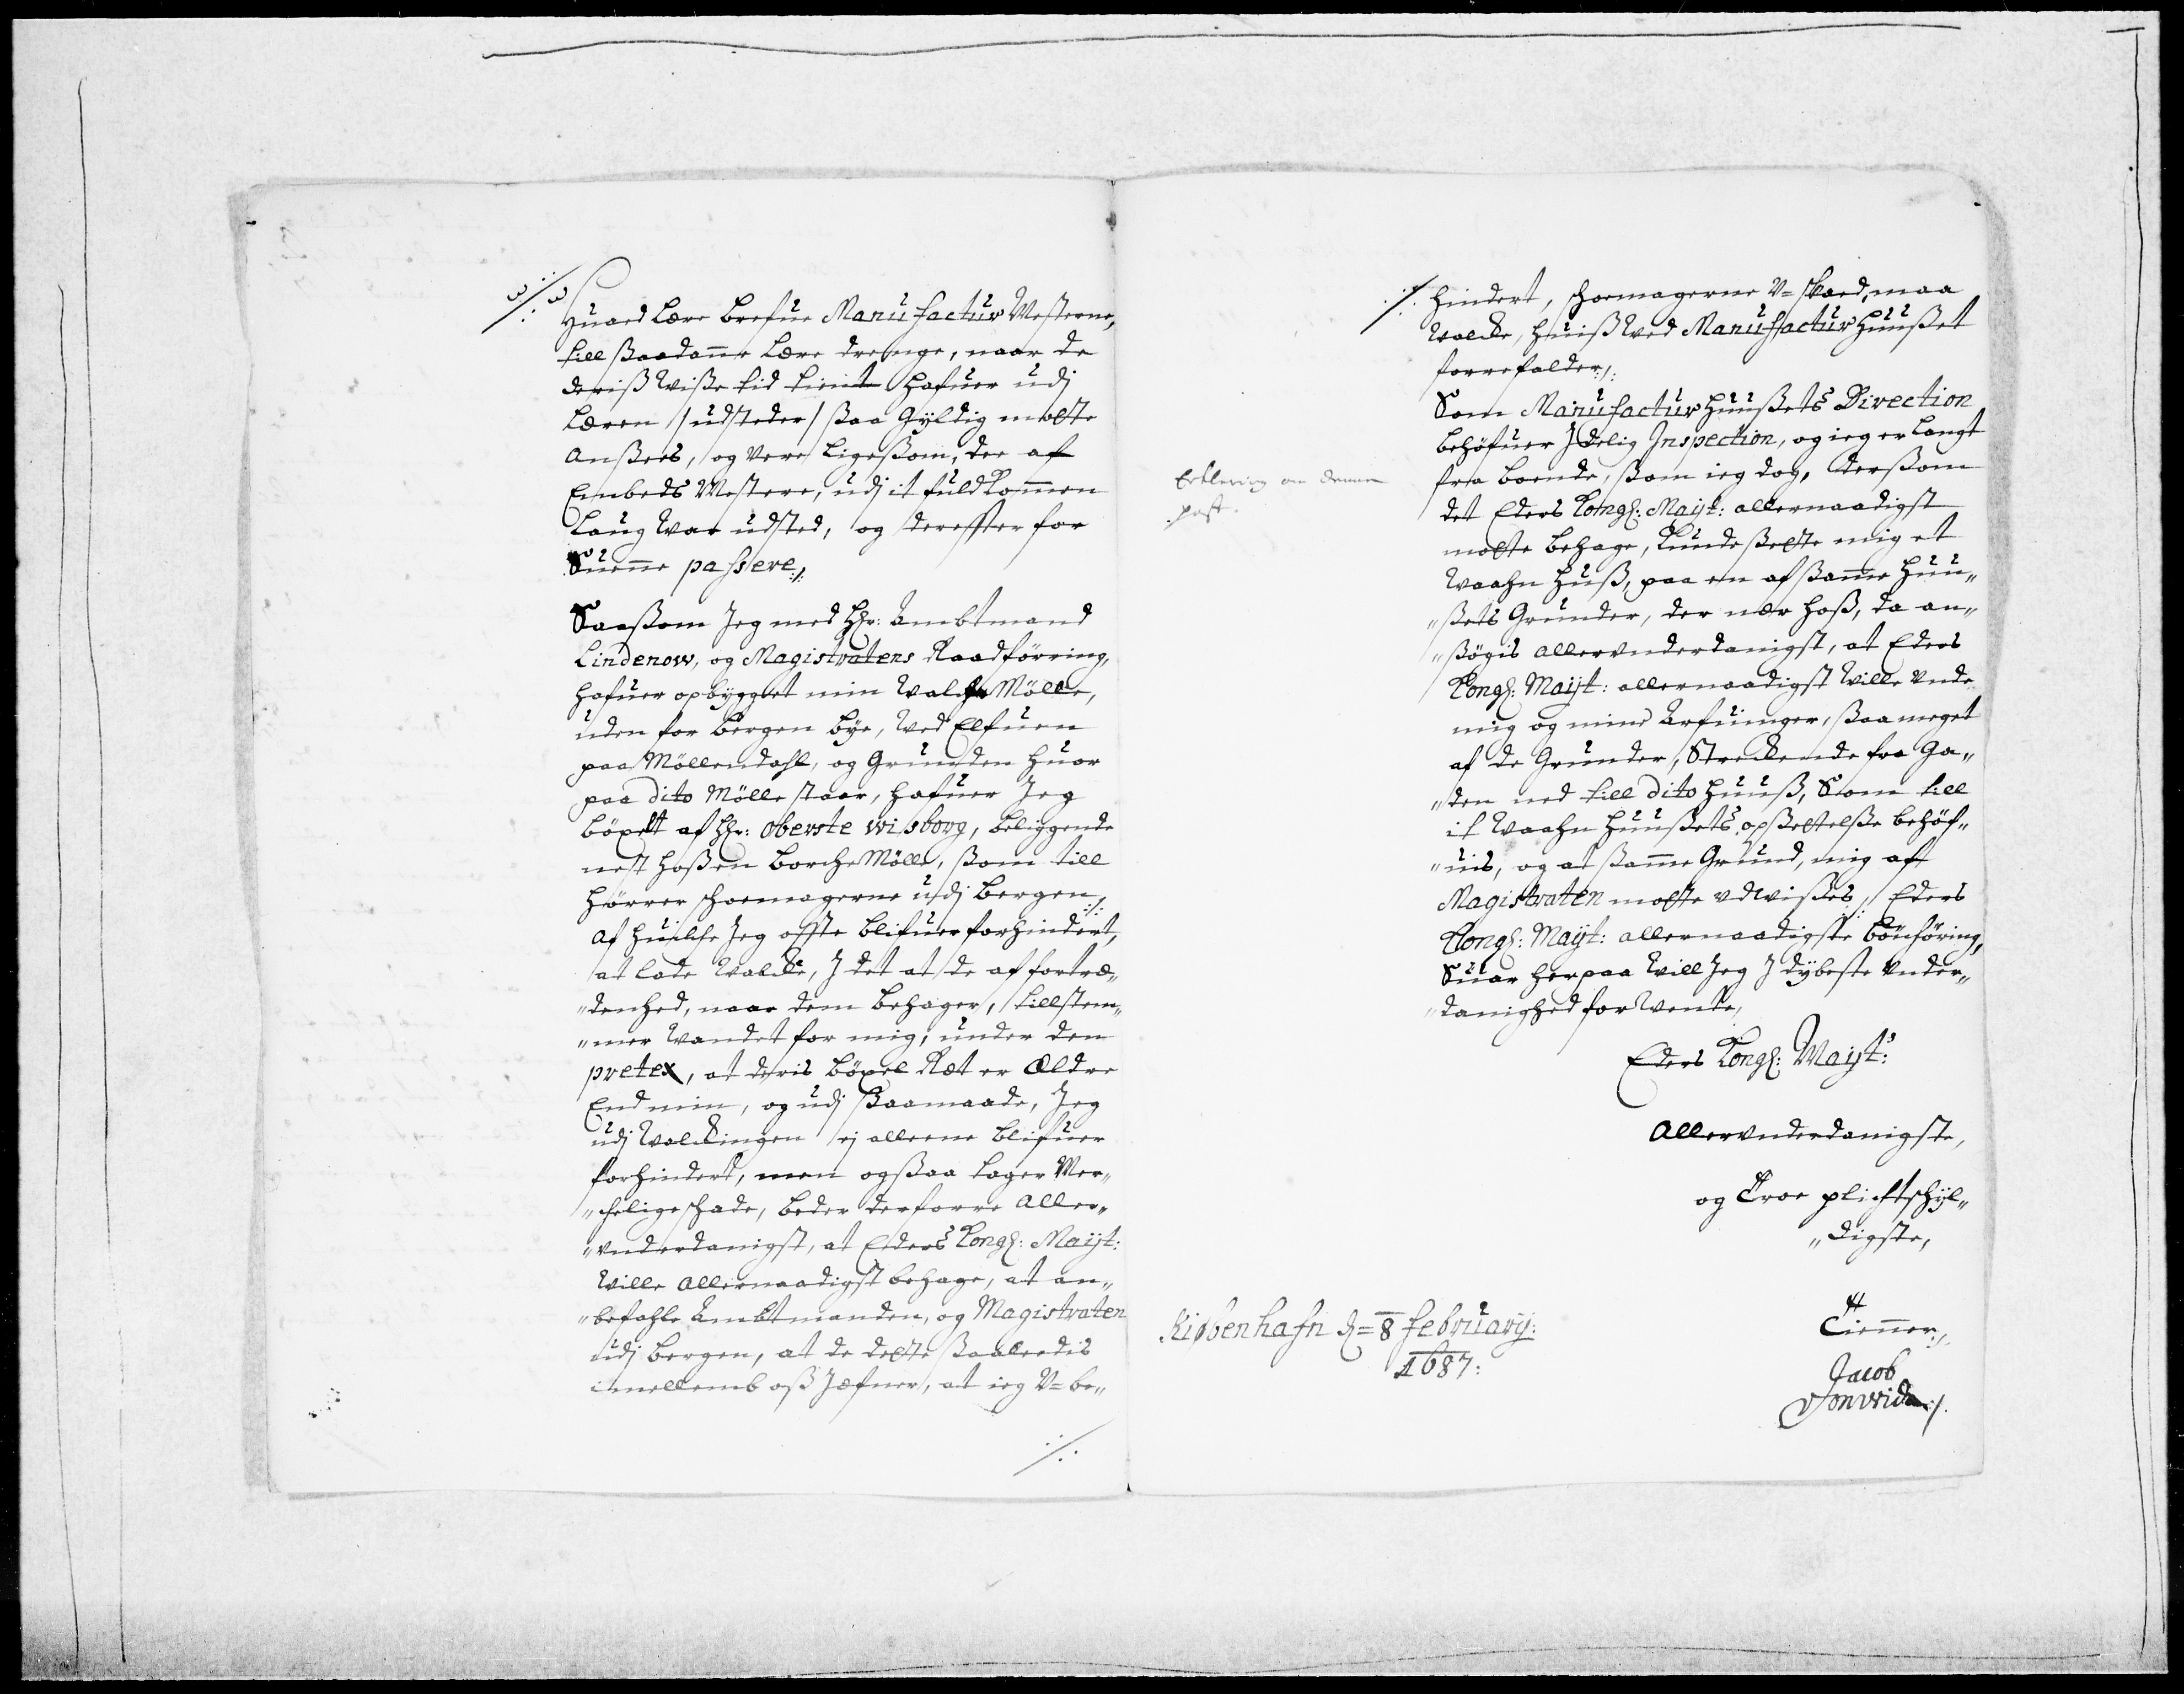 Huaed Lære brefue Manufactur Mesterne,
till ßaadanne Lære drenge, naar de
deriß wiße tid tient hafuer udj
Læren /udsteder/ ßaa Gyldig motte
anßees, og vere ligeßom, dee af
Embeds Mestere, udj it fuldkommen
Laug war udsted, og derefter for
Suenne passere ./.
Saaßom Jeg med Hr: Ambtmand
Lindenow, og Magistratens Raadföring,
hafuer opbygget min Walche Mölle,
uden for Bergen bye, wed Elfuen
paa Möllendahl, og Grunden huor
paa dito Mölle staar, hafuer Jeg
böxelt af Hr: Oberste Wisborg, beliggende
nest hoß en Borche Mölle, ßom till
hörrer schoemagerne udj Bergen,
af huilche Jeg offte blifuer forhindert, ./.
at lade walcke, J det at de af fortræ„
„denhed, naar dem behager, tillstem„
„mer Wandet for mig, under den
pretex, at deris böxel Ræt er Eldre
End min, og udj ßaamaade, Jeg
udj Walckingen ej alleene blifuer
forhindert, men ogßaa tager Mer„
„cheligschade, beder derforre Aller„
„vnderdanigst, at Eders Kongl: Mayt:
wille Allernaadigst behage, at an„
„befahle Ambtmanden, og Magistraten
udj Bergen, at de dette ßaaledis
imellemb oß Jæfner, at ieg V=be„
./.
./. hindert, schoemagerne V=skaed, maa
walcke, huiß wed Manufactur Huußet
forrefalder ./.
Som Manufactur Huußets Direction
behöfuer Jdelig Inspection, og ieg er langt
fra boende, ßom ieg dog, derßom
det Eders Kongl: Mayt: allernaadigst
motte behage, kunde ßette mig et
Waahn Huß, paa en af ßamme Huu„
„ßets Grunder, der nær hoß, da an„
„ßögis allervnderdanigst, at Eders
Kongl: Mayt: allernaadigst wille vnde
mig og mine Arfuinger, ßaa meget
af de Grunder, Streckende fra Ga„
„den ned till dito Huuß, Som till
it Waahn Huußets opßettelße behöf„
„uis, og at ßamme Grund, mig af
Magistraten motte udwißes, Eders
Kongl: Mayt: allernaadigste bönhöring,
Suar herpaa will Jeg J dybeste Vnder„
„danighed forwente,
Erklering om denne
post.
Eders Kongl: Mayt:s
Allervnderdanigste,
og Troe plichtschyl„
„digste,
Tienner ./.
Kiøbenhafn d= 8 february:
1687:
Jacob